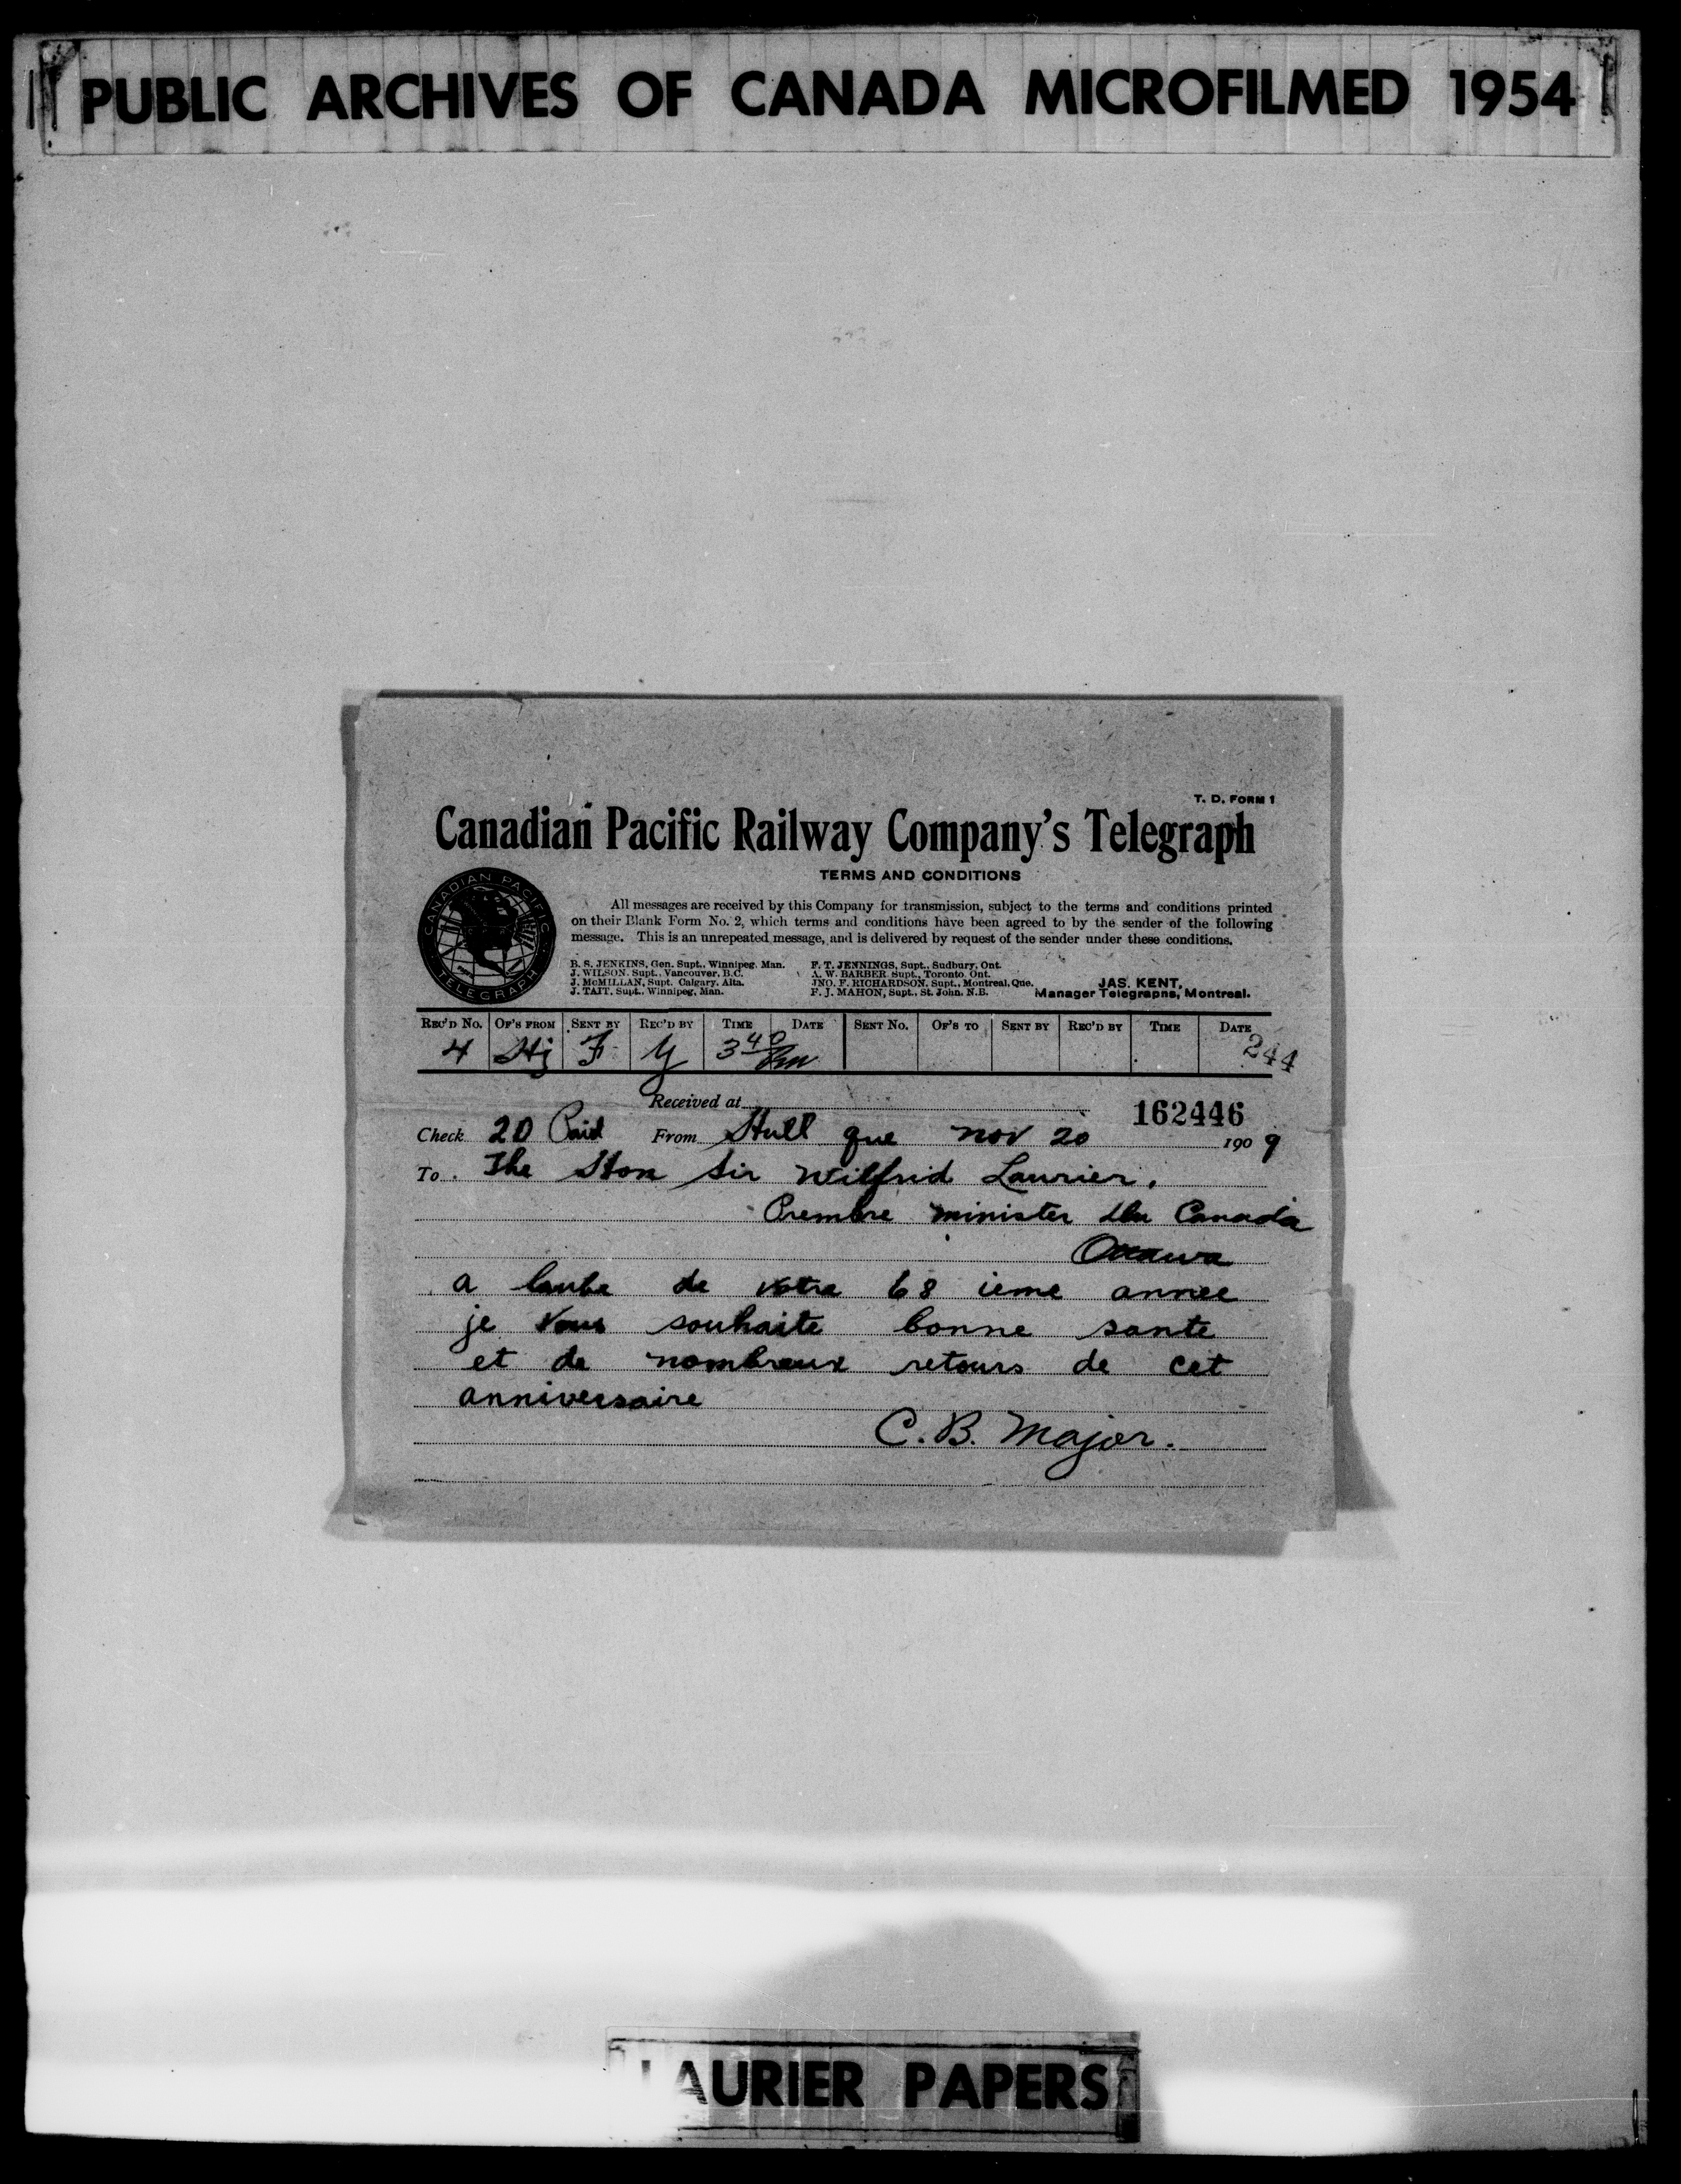 PUBLIC ARCHIVES OF CANADA MICROFILMED 1954
T. D. FORM 1
Canadian Pacific Railway Company's Telegraph
TERMS AND CONDITIONS
CANADIAN PACIFIC
TELEGRAPH
All messages are received by this Company for transmission, subject to the terms and conditions printed
on their Blank Form No. 2, which terms and conditions have been agreed to by the sender of the following
message. This is an unrepeated message, and is delivered by request of the sender under these conditions.
B. S. JENKINS, Gen. Supt., Winnipeg, Man. F. T. JENNINGS, Supt., Sudbury, Ont.
J. WILSON, Supt., Vancouver, B.C. A. W. BARBER, Supt., Toronto, Ont.
J. McMILLAN, Supt. Calgary, Alta. JNO. F. RICHARDSON, Supt., Montreal, Que. JAS. KENT,
J. TAIT, Supt., Winnipeg, Man. F. J. MAHON, Supt., St. John, N.B. Manager Telegraphs, Montreal.
REC'D No. OF'S FROM SENT BY REC'D BY TIME DATE SENT No. OF'S TO SENT BY REC'D BY TIME DATE
4 Hj F Y 3 40 Pm 244
Received at 162446
Check 20 Paid From Hull que nov 20 190 9
To The Hon Sir Wilfrid Laurier,
minister du Canada
Ottawa
a laube de votre 68 ieme annee
je vous souhaite bonne sante
et de nombreux retours de cet
anniversaire
C. B. Major.
LAURIER PAPERS